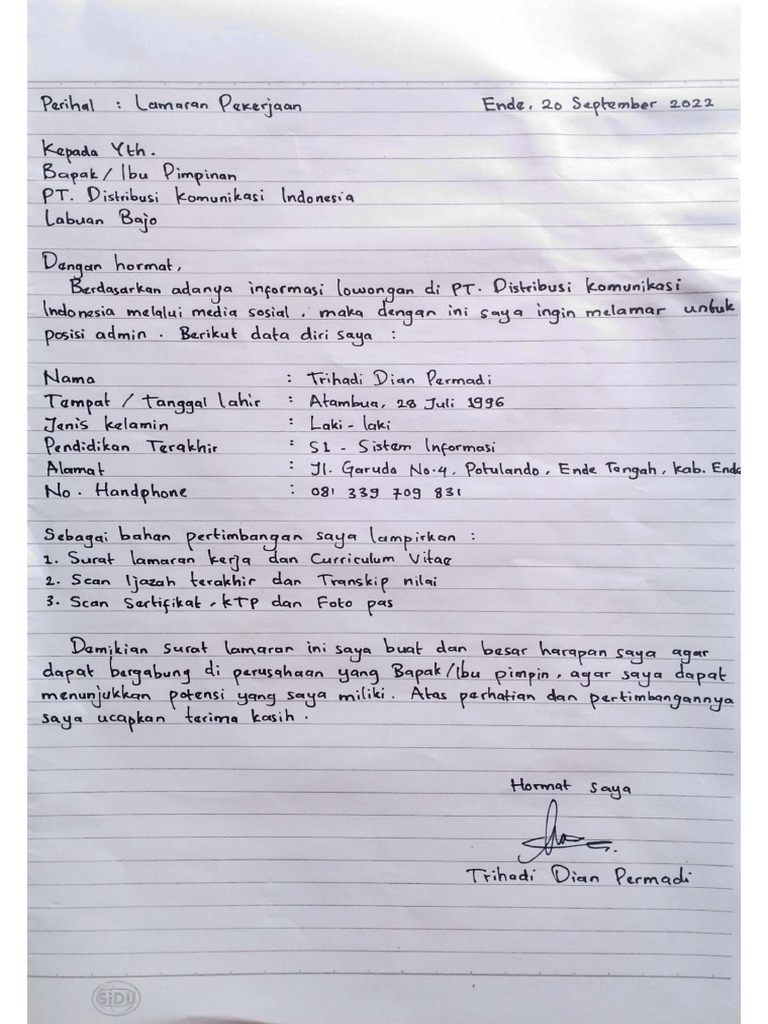 Perihal : Lamaran Pekerjaan Ende, 20 September 2022
Kepada Yth.
Bapak/Ibu Pimpinan
PT. Distribusi Komunikasi Indonesia
Labuan Bajo
Dengan hormat,
Berdasarkan adanya informasi lowongan di PT. Distribusi Komunikasi
Indonesia melalui media sosial, maka dengan ini saya ingin melamar untuk
posisi admin. Berikut data diri saya :
Nama : Trihadi Dian Permadi
Tempat / Tanggal lahir : Atambua, 28 Juli 1996
Jenis Kelamin : Laki-laki
Pendidikan Terakhir : S1 - Sistem Informasi
Alamat : Jl. Garuda No.4, Potulando, Ende Tengah, Kab. Ende
No. Handphone : 081 339 709 831
Sebagai bahan pertimbangan saya lampirkan :
1. Surat lamaran kerja dan Curriculum Vitae
2. Scan Ijazah terakhir dan Transkip nilai
3. Scan Sertifikat, KTP dan Foto pas
Demikian surat lamaran ini saya buat dan besar harapan saya agar
dapat bergabung di perusahaan yang Bapak/Ibu pimpin, agar saya dapat
menunjukkan potensi yang saya miliki. Atas perhatian dan pertimbangannya
saya ucapkan terima kasih.
Hormat saya
Trihadi Dian Permadi
SiDU